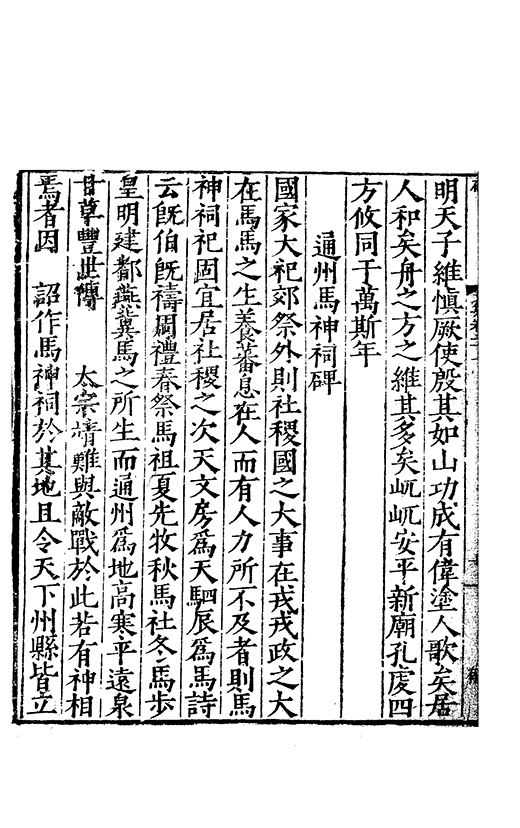 明天子維慎厥使殷其如山功成有偉塗人歌矣居
人和矣舟之方之維其多矣屹屹安平新廟孔虔四
方攸同于萬斯年
通州馬神祠碑
國家大祀郊祭外則社稷國之大事在戎戎政之大
在馬馬之生養蕃息在人而有人力所不及者則馬
神祠祀固宜居社稷之次天文房為天駟辰為馬詩
云既伯既禱周禮春祭馬祖夏先牧秋馬社冬馬步
皇明建都燕冀馬之所生而通州為地高寒平遠泉
甘草豐世傳 太宗靖難與敵戰於此若有神相
焉者因 詔作馬神祠於其地且令天下州縣皆立